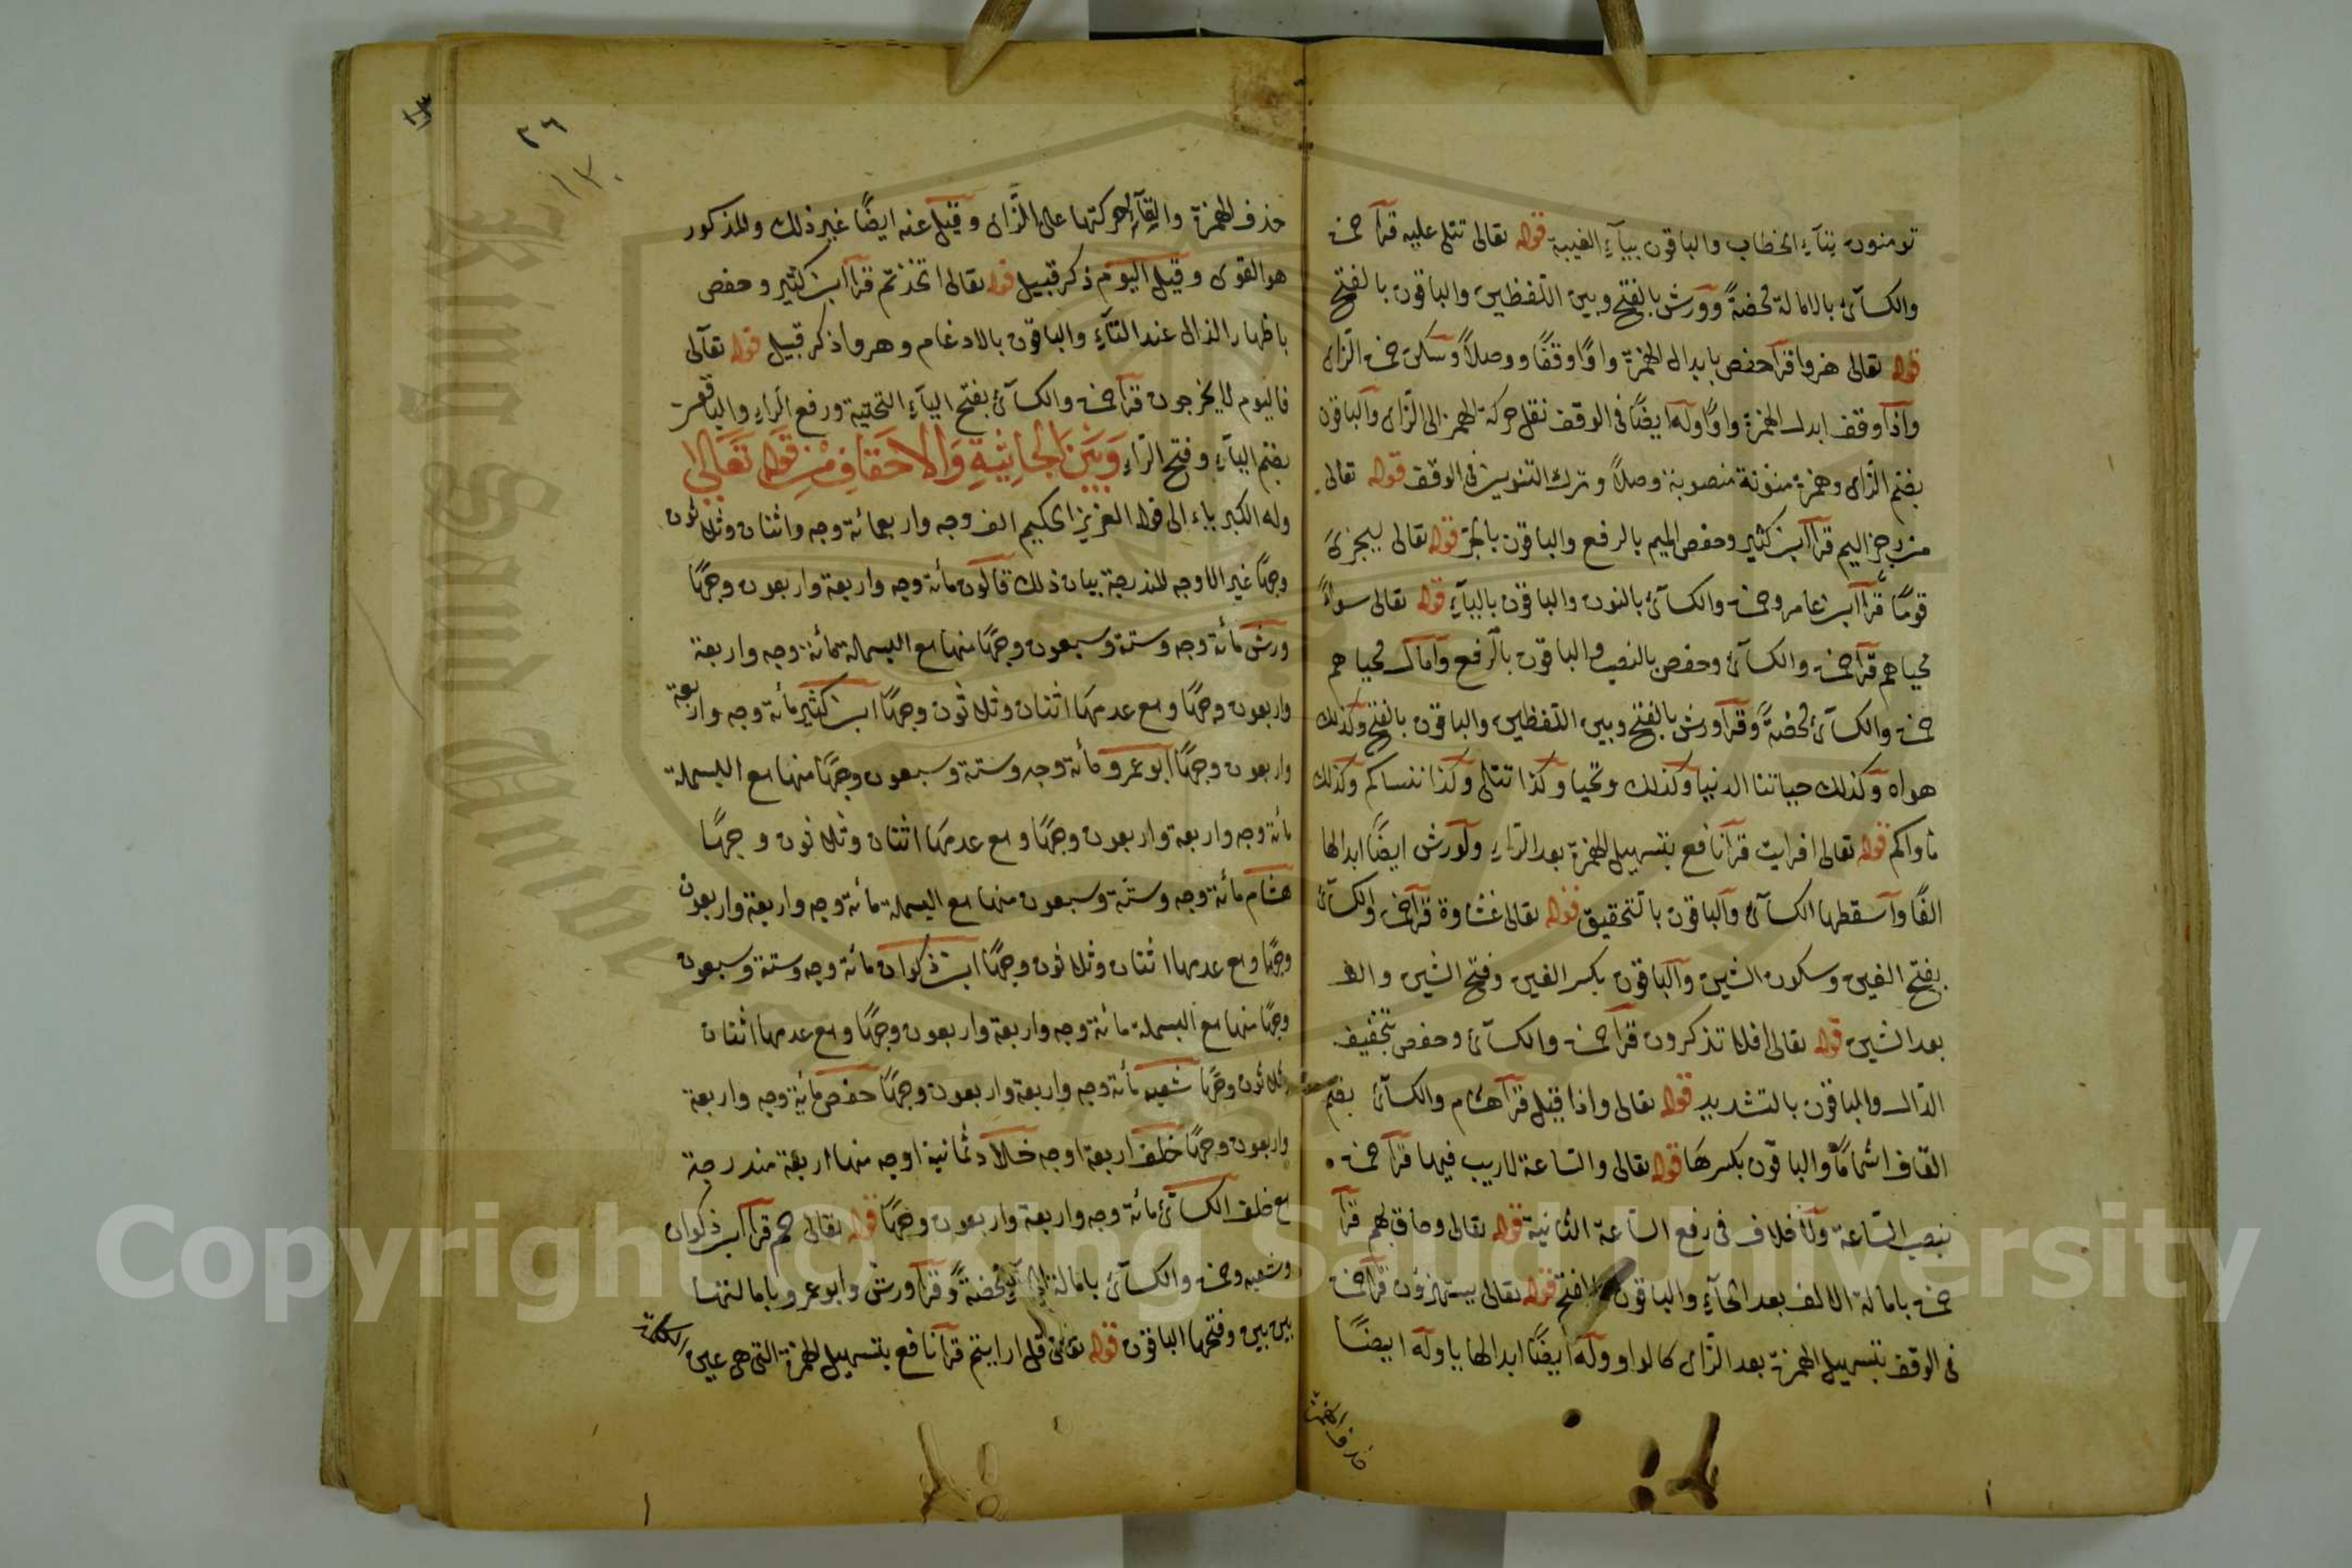 تومنون بتآءِ الخطاب والباقون بيآءِ الغيبة قوله تعالى تتلى عليه قرآ حمزة
والكسآئى بالامالة محضةً وورش بالفتح وبين اللفظين والباقون بالفتح
قوله تعالى هزوا قرآ حفص بابدال الهمزة واوًا وقفًا ووصلاً وسكن حمزة الزاى
واذا وقف ابدل الهمزة واوًا وله ايضًا فى الوقف نقل حركة الهمز الى الزاى والباقون
بضم الزاى وهمزة منونة منصوبة وصلاً وترك التنوين فى الوقف قوله تعالى
من رجز اليم قرآ ابن كثير وحفص الميم بالرفع والباقون بالجر قوله تعالى ليجزىَ
قومًا قرآ ابن عامر وحمزة والكسآئى بالنون والباقون باليآءِ قوله تعالى سوآءً
محياهم قرآ حمزة والكسآئى وحفص بالنصب والباقون بالرفع وامال محياهم
حمزة والكسآئى محضةً وقرآ ورش بالفتح وبين اللفظين والباقون بالفتح وكذلك
هواه وكذلك حياتنا الدنيا وكذلك ونحيا وكذا تتلى وكذا ننساكم وكذلك
مأواكم قوله تعالى افرايت قرآ نافع بتسهيل الهمزة بعد الرآءِ ولورش ايضًا ابدالها
الفًا واسقطها الكسآئى والباقون بالتحقيق قوله تعالى غشاوة قرآ حمزة والكسآئى
بفتح الغين وسكون الشين والباقون بكسر الغين وفتح الشين والف
بعد الشين قوله تعالى افلا تذكرون قرآ حمزة والكسآئى وحفص بتخفيف
الذال والباقون بالتشديد قوله تعالى واذا قيل قرآ هشام والكسآئى بضم
القاف اشمامًا والباقون بكسرها قوله تعالى والساعة لاريب فيها قرآ حمزة
بنصب الساعة ولا خلاف فى رفع الساعة الثانية قوله تعالى وحاق بهم قرآ
حمزة بامالة الالف بعد الحآءِ والباقون بالفتح قوله تعالى يستهزؤن قرآ حمزة
فى الوقف بتسهيل الهمزة بعد الزاى كالواو وله ايضًا ابدالها يا وله ايضًا
حذف الهمزة
٣٦
١٣٠
حذف الهمزة والقآءِ حركتها على الزاى وقيل عنه ايضًا غير ذلك والمذكور
هو القوى وقيل اليوم ذكر قبيل قوله تعالى اتخذتم قرآ ابن كثير وحفص
باظهار الذال عند التآءِ والباقون بالادغام وهزوا ذكر قبيل قوله تعالى
فاليوم لا يخرجون قرآ حمزة والكسآئى بفتح اليآءِ التحتية ورفع الرآءِ والباقون
بضم اليآءِ وفتح الرآءِ وَبَيْنَ الجَاثِيَةِ وَالاَحقَافِ مِنْ قَوْلِهِ تَعَالَى
وله الكبرياء الى قوله العزيز الحكيم الف وجه واربعمائة وجه واثنان وثلاثون
وجهًا غير الاوجه المندرجة بيان ذلك قالون مائة وجه واربعة واربعون وجهًا
ورش مائة وجه وستة وسبعون وجهًا منها مع البسملة مائة وجه واربعة
واربعون وجهًا ومع عدمها اثنان وثلاثون وجهًا ابن كثير مائة وجه واربعة
واربعون وجهًا ابو عمرو مائة وجه وستة وسبعون وجهًا منها مع البسملة
مائة وجه واربعة واربعون وجهًا ومع عدمها اثنان وثلاثون وجهًا
هشام مائة وجه وستة وسبعون منها مع البسملة مائة وجه واربعة واربعون
وجهًا ومع عدمها اثنان وثلاثون وجهًا ابن ذكوان مائة وجه وستة وسبعون
وجهًا منها مع البسملة مائة وجه واربعة واربعون وجهًا ومع عدمها اثنان
وثلاثون وجهًا شعبه مائة وجه واربعة واربعون وجهًا حفص مائة وجه واربعة
واربعون وجهًا خلف اربعة اوجه خلاد ثمانية اوجه منها اربعة مندرجة
مع خلف الكسآئى مائة وجه واربعة واربعون وجهًا قوله تعالى حم قرآ ابن ذكوان
وشعبه وحمزة والكسآئى بامالة الحآءِ محضةً وقرآ ورش وابو عمرو بامالتها
بين بين وفتحها الباقون قوله تعالى قل ارايتم قرآ نافع بتسهيل الهمزة التى هى عين
الكلمة
King Saud University
Copyright © King Saud University